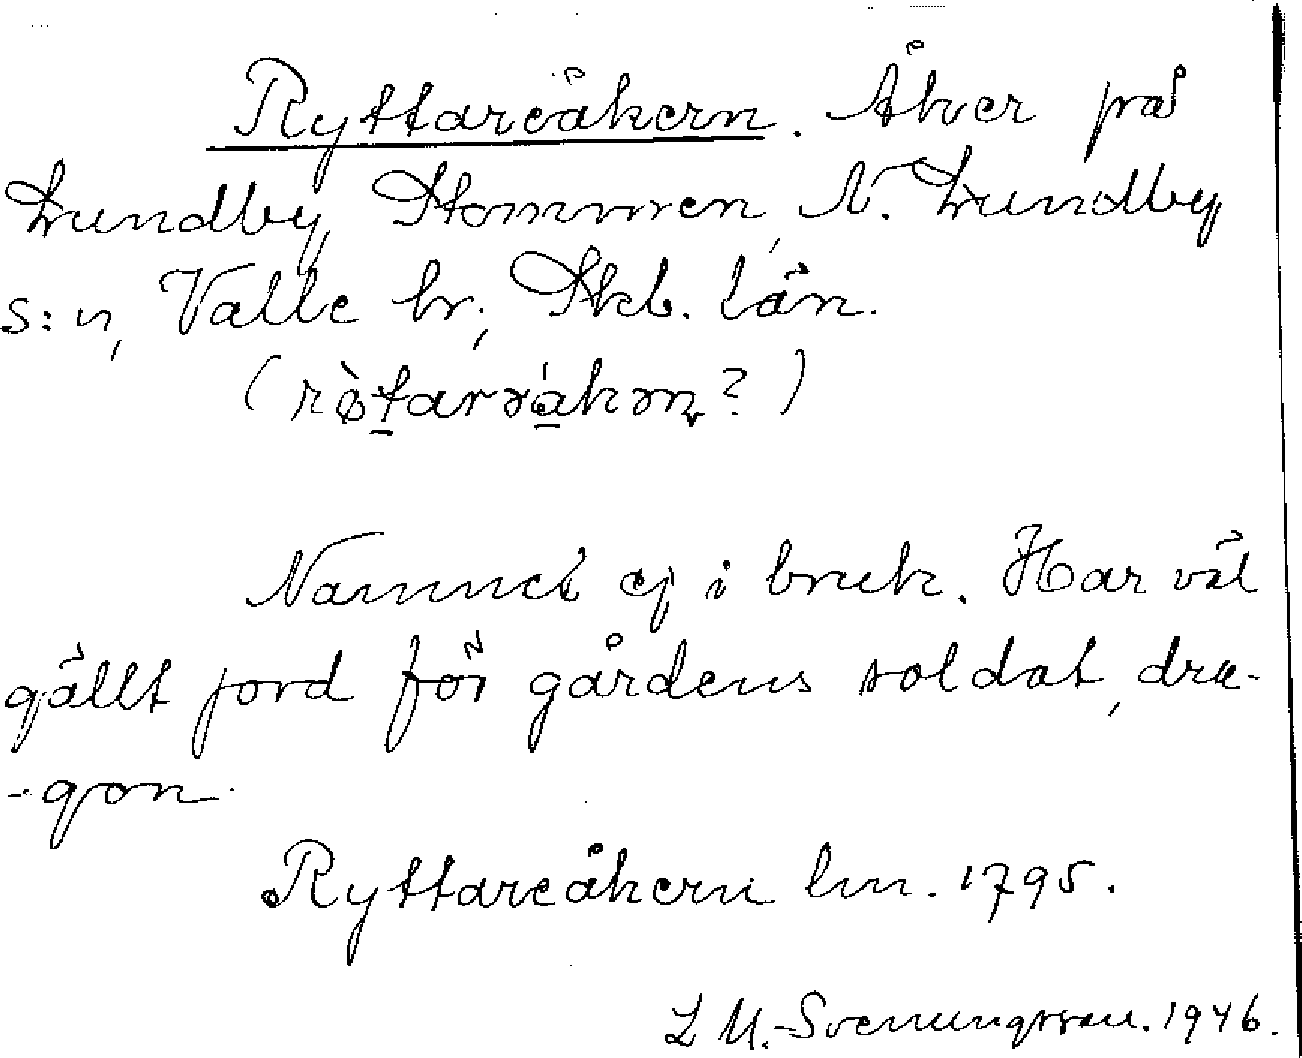 Ryttareåkern. Åker på
Lundby Stommen, N. Lundby
s:n, Valle hr, Skb. län.
Namnet ej i bruk. Har väl
gällt jord för gårdens soldat, dra-
-gon.
Ryttareåkern lm. 1795.
L M.-Svenungsson. 1946.